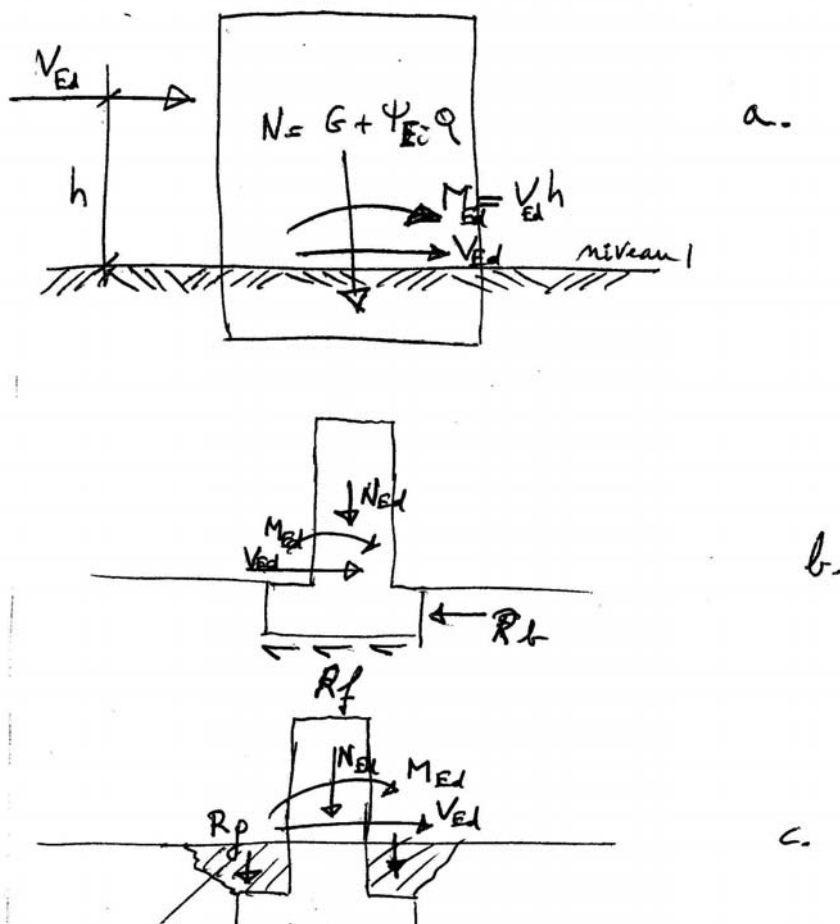 V_Ed
a.
N = G + Ψ_Ei Q
h
M_Ed = V_Ed h
V_Ed
niveau 1
N_Ed
M_Ed
V_Ed
b.
R_b
R_f
N_Ed
M_Ed
V_Ed
R_p
c.